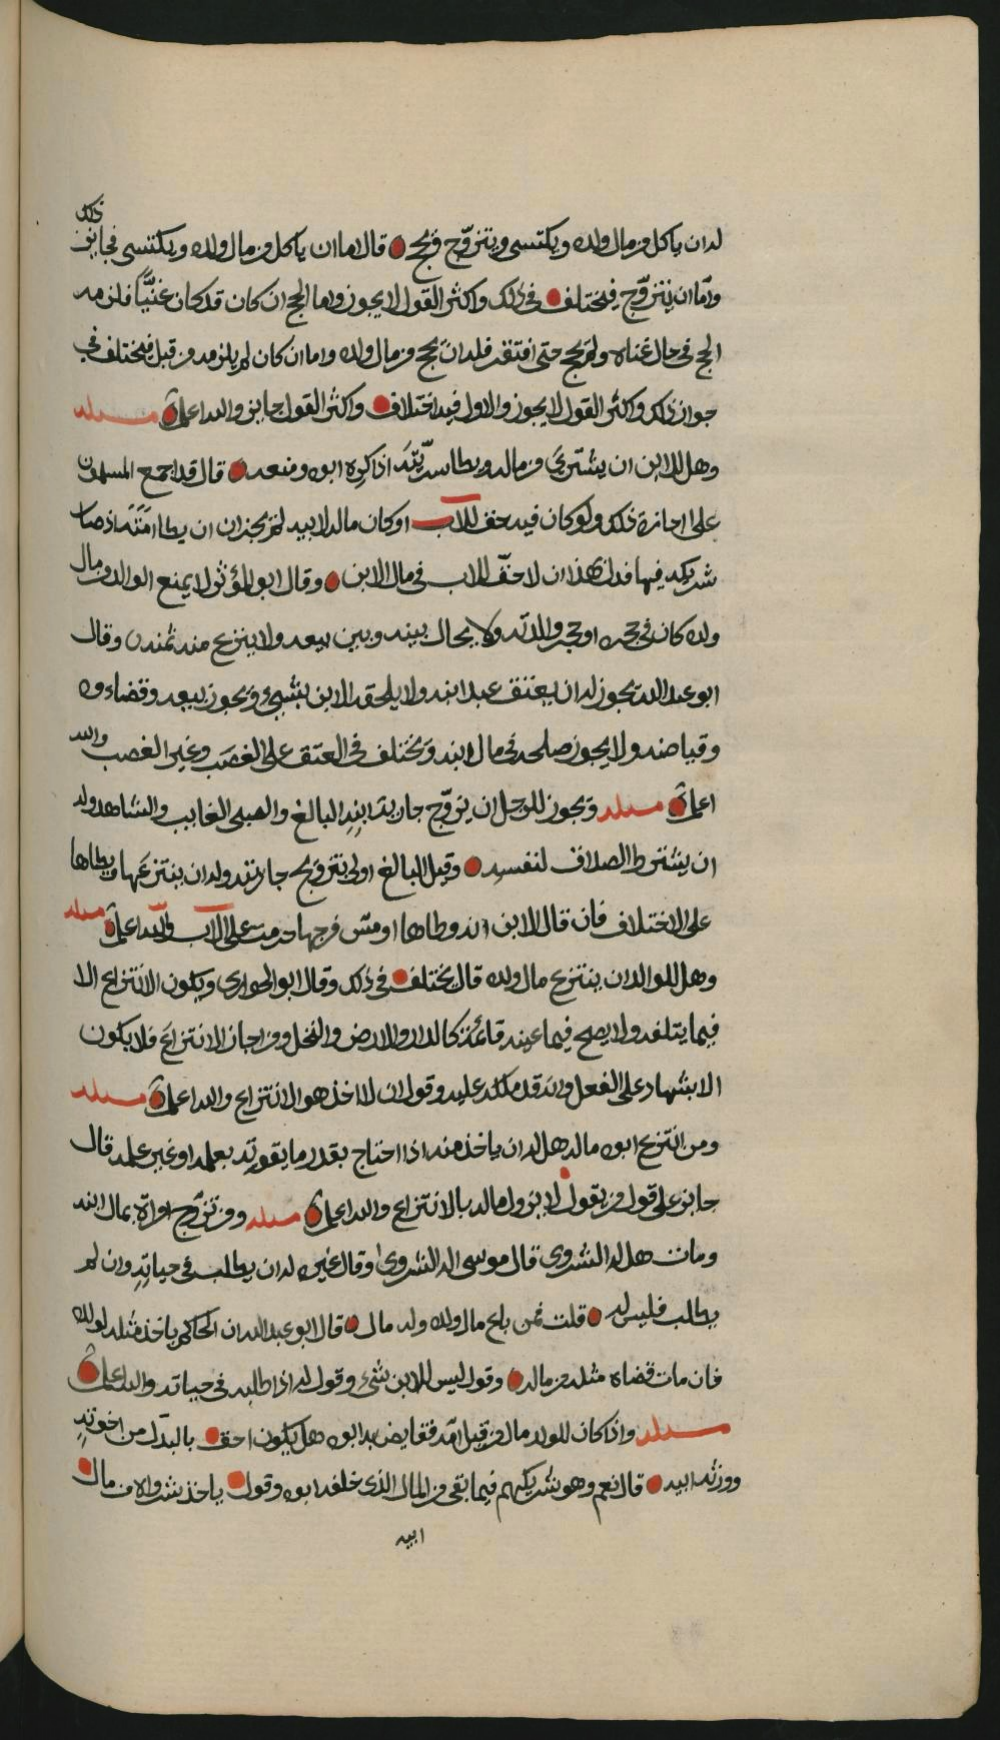 له ان ياكل من مال ولده ويكتسي ويتزوّج ويحج قال اما ان ياكل من مال ولده ويكتسي فجايز ذلك
وامّا ان يتزوّج فيختلف في ذلك واكثر القول لا يجوز واما الحج ان كان قد كان غنيًّا فلزمه
الحج في حال غناه ولم يحج حتى افتقر فله ان يحج من مال ولده واما ان كان لم يلزمه من قبل فيختلف في
جواز ذلك واكثر القول لا يجوز والاول فيه اختلاف واكثر القول جايز والله اعلم مسئله
وهل للابن ان يشتري من ماله ويطا سريّته اذا كره ابوه ومنعه قال قد اجمع المسلمون
على اجازة ذلك ولو كان فيه حق للاب او كان ماله لابيه لم يجز ان يطا امته اذ صار
شريكه فيها فدل هذا ان لا حقّ للاب في مال الابن وقال ابو المؤثر لا يمنع الوالد من مال
ولده كان في حجره او حجر والدته ولا يحال بينه وبين بيعه ولا ينزع منه ثمنه وقال
ابو عبد الله يجوز له ان يعتق عبد ابنه ولا يلحقه الابن بشيء ويجوز بيعه وقضاءوه
وقياضه ولا يجوز صلحه في مال ابنه ويختلف في العتق على الغصب وغير الغصب والله
اعلم مسئله ويجوز للرجل ان يزوّج جارية ابنه البالغ والصبي الغايب والشاهد وله
ان يشترط الصداق لنفسه وقيل البالغ اولى بتزويج جاريته وله ان ينتزعها ويطاها
على الاختلاف فان قال الابن انه وطاها او مسّ فرجها حرمت على الاب والله اعلم مسئله
وهل للوالد ان ينتزع مال ولده قال يختلف في ذلك وقال ابو الحواري ويكون الانتزاع الا
فيما يتلفه ولا يصح فيما عينه قائمة كالدار والارض والنخل ومن اجاز الانتزاع فلا يكون
الا بشهاد على الفعل وانه قد ملكه عليه وقول ان الاخذ هو الانتزاع والله اعلم مسئله
ومن انتزع ابوه ماله هل له ان ياخذ منه اذا احتاج بقدر ما يقوته بعلمه او غير علمه قال
جايز على قول من يقول لابن ولا ماله بالانتزاع والله اعلم مسئله ومن تزوّج امراة بمال ابنه
ومات هل له الشروى قال موسى اله الشروى وقال غيره له ان يطلب في حياته وان لم
يطلب فليس له قلت فمن باع مال ولده وله مال قال ابو عبد الله ان الحاكم ياخذ مثله لولده
فان مات قضاه مثله من ماله وقول ليس للابن شيء وقول له اذا طلبه في حياته والله اعلم
مسئله واذا كان للولد مال من قبل امّه فقايض به ابوه هل يكون احق بالبدل من اخوته
وورثة ابيه قال نعم وهو شريكهم فيما بقى من المال الذي خلفه ابوه وقول ياخذ شرواه من مال
ابيه